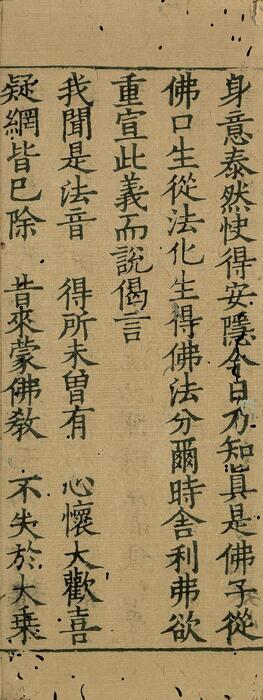 身意泰然快得安隱今日乃知真是佛子從
佛口生從法化生得佛法分爾時舍利弗欲
重宣此義而說偈言
我聞是法音　得所未曾有　心懷大歡喜
疑網皆已除　昔來蒙佛教　不失於大乘